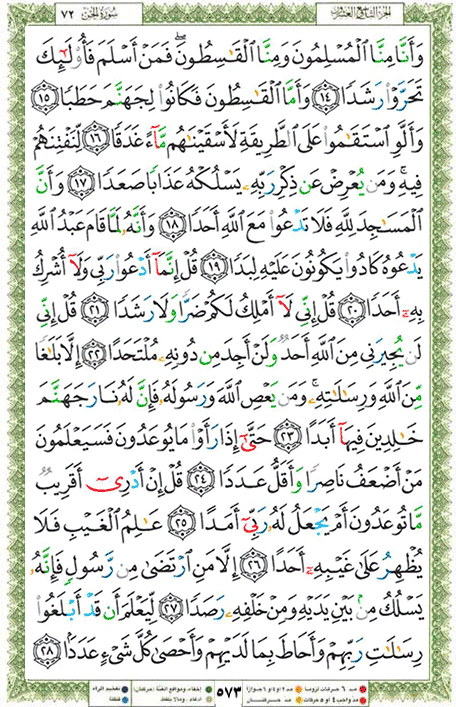 الجزء التاسع والعشرون
سورة الجن ٧٢
وَأَنَّا مِنَّا ٱلْمُسْلِمُونَ وَمِنَّا ٱلْقَٰسِطُونَ ۖ فَمَنْ أَسْلَمَ فَأُو۟لَٰٓئِكَ
تَحَرَّوْا۟ رَشَدًا ١٤ وَأَمَّا ٱلْقَٰسِطُونَ فَكَانُوا۟ لِجَهَنَّمَ حَطَبًا ١٥
وَأَلَّوِ ٱسْتَقَٰمُوا۟ عَلَى ٱلطَّرِيقَةِ لَأَسْقَيْنَٰهُم مَّآءً غَدَقًا ١٦ لِّنَفْتِنَهُمْ
فِيهِ ۚ وَمَن يُعْرِضْ عَن ذِكْرِ رَبِّهِۦ يَسْلُكْهُ عَذَابًا صَعَدًا ١٧ وَأَنَّ
ٱلْمَسَٰجِدَ لِلَّهِ فَلَا تَدْعُوا۟ مَعَ ٱللَّهِ أَحَدًا ١٨ وَأَنَّهُۥ لَمَّا قَامَ عَبْدُ ٱللَّهِ
يَدْعُوهُ كَادُوا۟ يَكُونُونَ عَلَيْهِ لِبَدًا ١٩ قُلْ إِنَّمَآ أَدْعُوا۟ رَبِّى وَلَآ أُشْرِكُ
بِهِۦٓ أَحَدًا ٢٠ قُلْ إِنِّى لَآ أَمْلِكُ لَكُمْ ضَرًّا وَلَا رَشَدًا ٢١ قُلْ إِنِّى
لَن يُجِيرَنِى مِنَ ٱللَّهِ أَحَدٌ وَلَنْ أَجِدَ مِن دُونِهِۦ مُلْتَحَدًا ٢٢ إِلَّا بَلَٰغًا
مِّنَ ٱللَّهِ وَرِسَٰلَٰتِهِۦ ۚ وَمَن يَعْصِ ٱللَّهَ وَرَسُولَهُۥ فَإِنَّ لَهُۥ نَارَ جَهَنَّمَ
خَٰلِدِينَ فِيهَآ أَبَدًا ٢٣ حَتَّىٰٓ إِذَا رَأَوْا۟ مَا يُوعَدُونَ فَسَيَعْلَمُونَ
مَنْ أَضْعَفُ نَاصِرًا وَأَقَلُّ عَدَدًا ٢٤ قُلْ إِنْ أَدْرِىٓ أَقَرِيبٌ
مَّا تُوعَدُونَ أَمْ يَجْعَلُ لَهُۥ رَبِّىٓ أَمَدًا ٢٥ عَٰلِمُ ٱلْغَيْبِ فَلَا
يُظْهِرُ عَلَىٰ غَيْبِهِۦٓ أَحَدًا ٢٦ إِلَّا مَنِ ٱرْتَضَىٰ مِن رَّسُولٍ فَإِنَّهُۥ
يَسْلُكُ مِنۢ بَيْنِ يَدَيْهِ وَمِنْ خَلْفِهِۦ رَصَدًا ٢٧ لِّيَعْلَمَ أَن قَدْ أَبْلَغُوا۟
رِسَٰلَٰتِ رَبِّهِمْ وَأَحَاطَ بِمَا لَدَيْهِمْ وَأَحْصَىٰ كُلَّ شَىْءٍ عَدَدًۢا ٢٨
٥٧٣